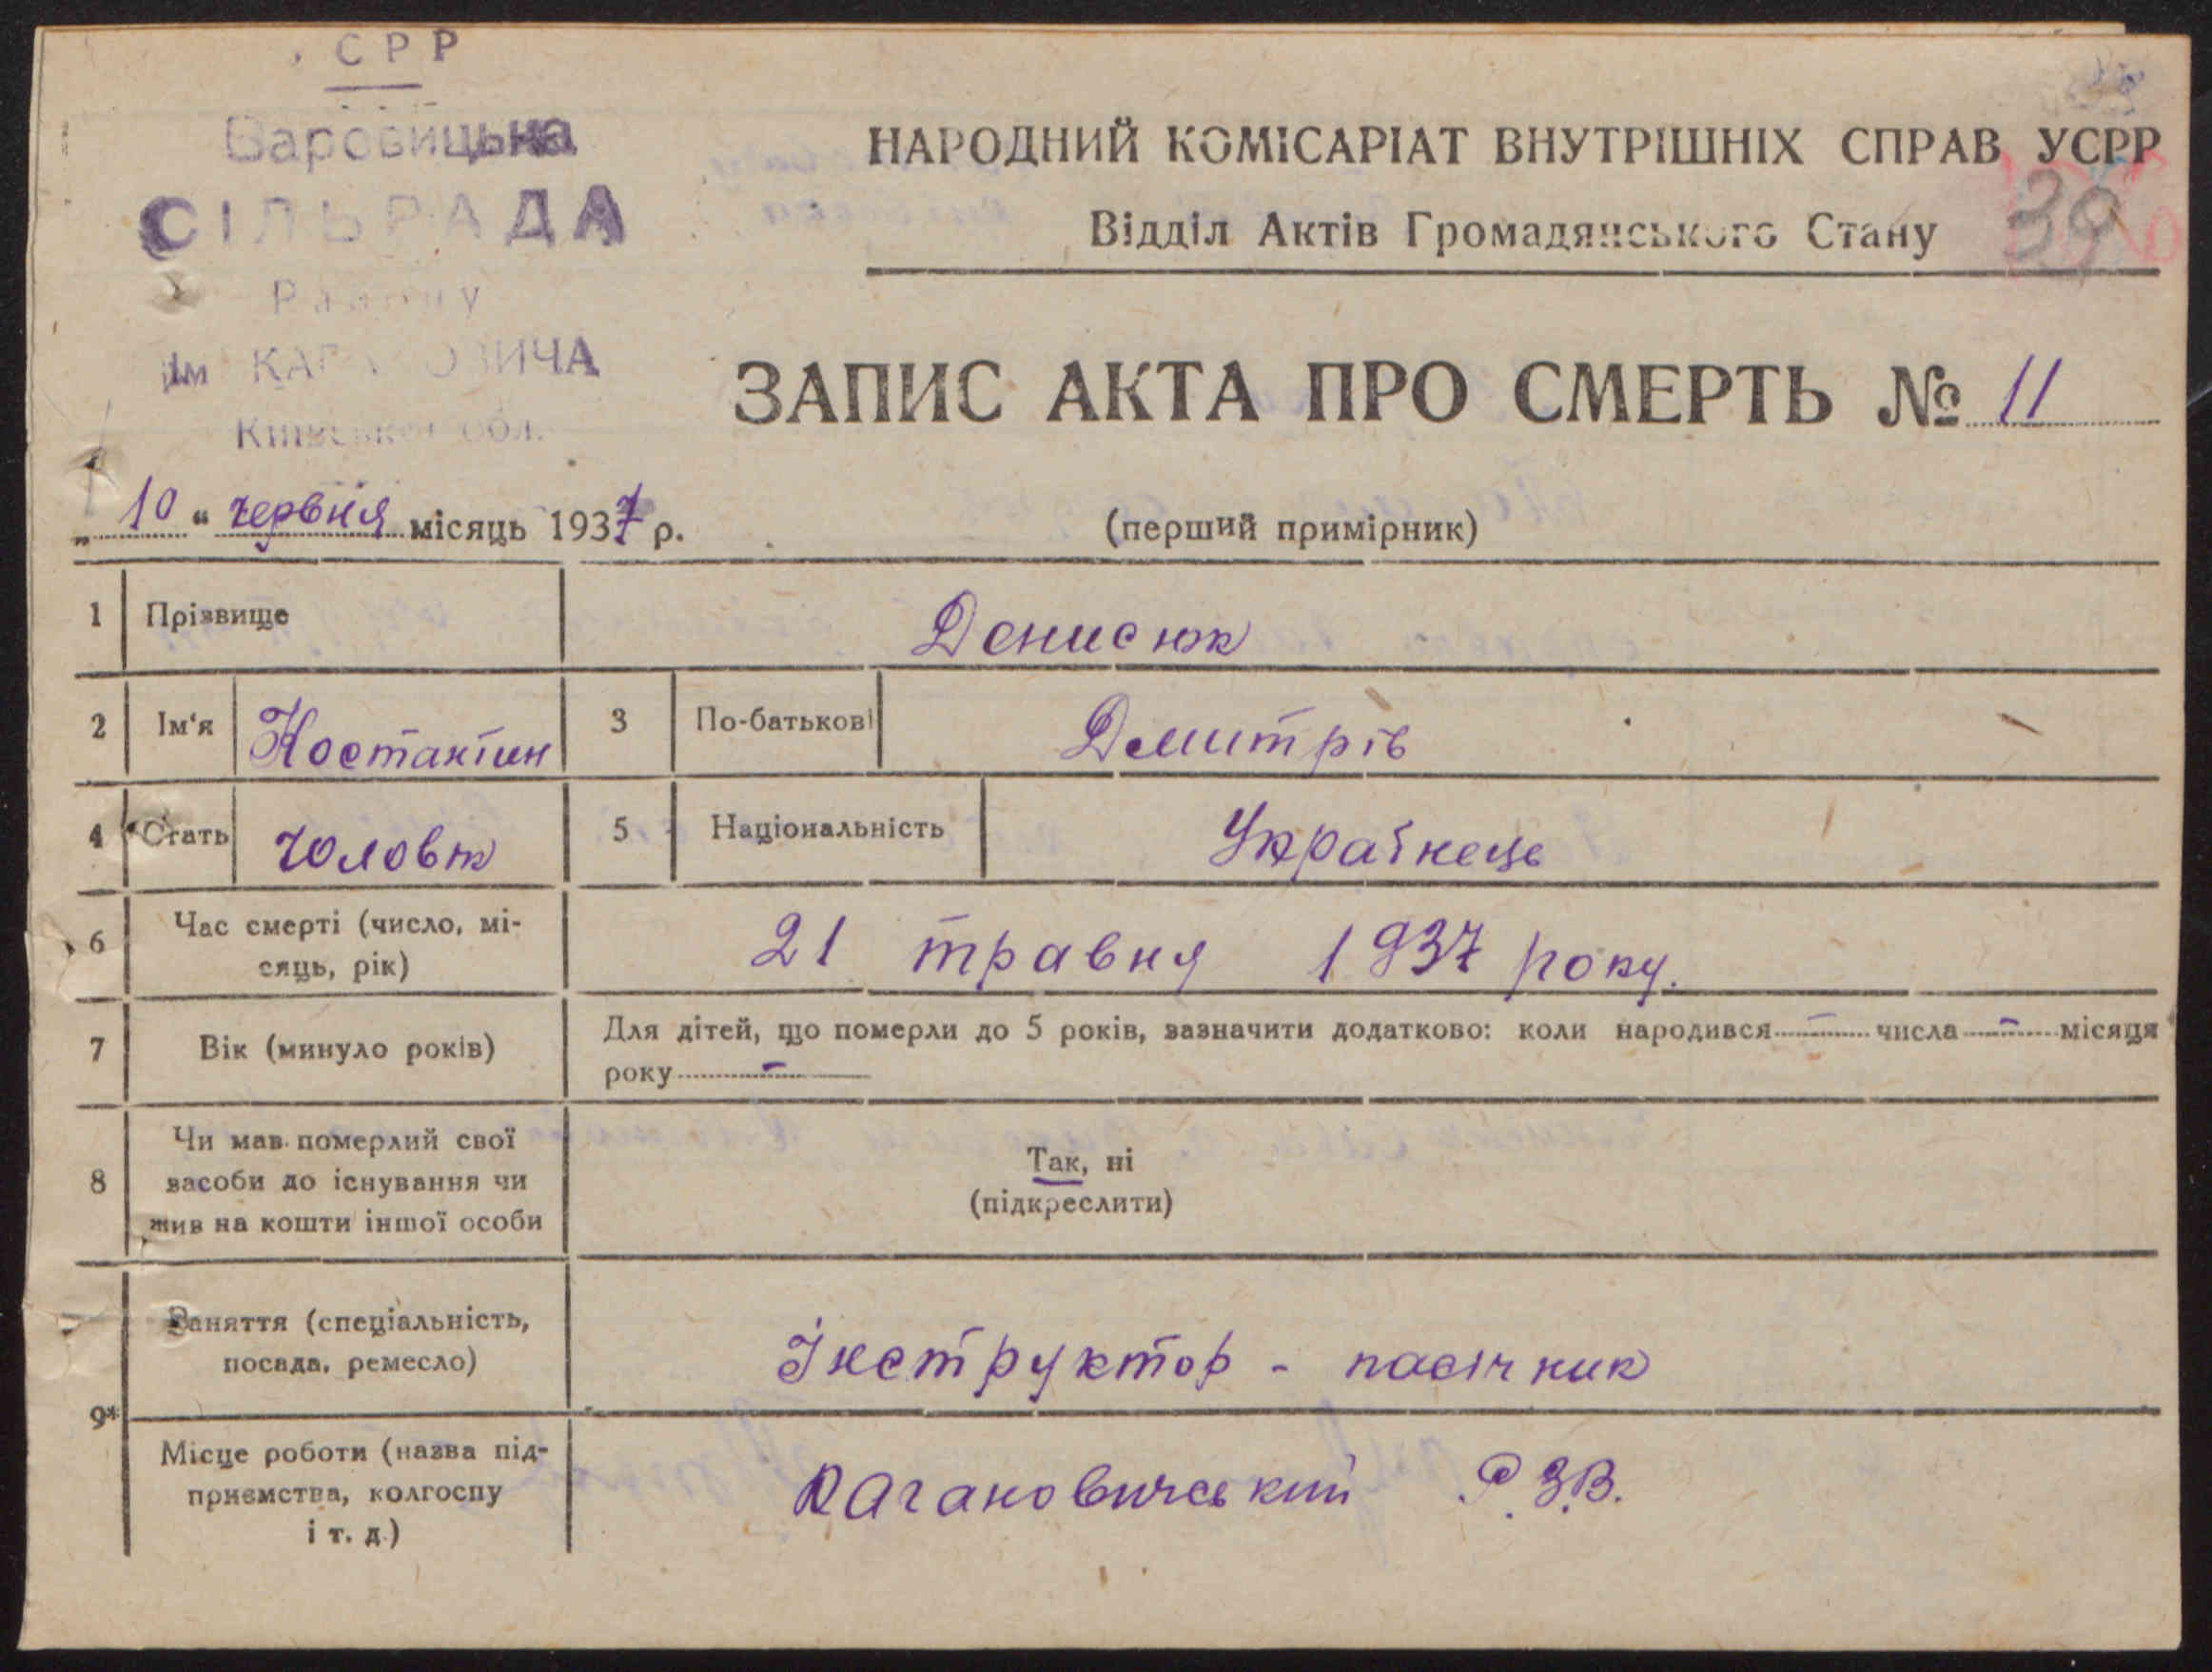 СРР
Варовицька
СІЛЬРАДА
Району
Ім КАГАНОВИЧА
Київської обл.
НАРОДНИЙ КОМІСАРІАТ ВНУТРІШНІХ СПРАВ УСРР
Відділ Актів Громадянського Стану
39
ЗАПИС АКТА ПРО СМЕРТЬ № 11
„ 10 “ червня місяць 1937 р.
(перший примірник)
1 Прізвище Денисюк
2 Ім‘я Костантин 3 По-батькові Дмитрів
4 Стать чоловік 5 Національність Українець
6 Час смерті (число, мі-
сяць, рік) 21 травня 1937 року.
7 Вік (минуло років) Для дітей, що померли до 5 років, зазначити додатково: коли народився - числа - місяця
року -
8 Чи мав померлий свої
засоби до існування чи
жив на кошти іншої особи
Так, ні
(підкреслити)
9* Заняття (спеціальність,
посада, ремесло) Інструктор - пасічник
Місце роботи (назва під-
приємства, колгоспу
і т. д.) Кагановичський Р.З.В.